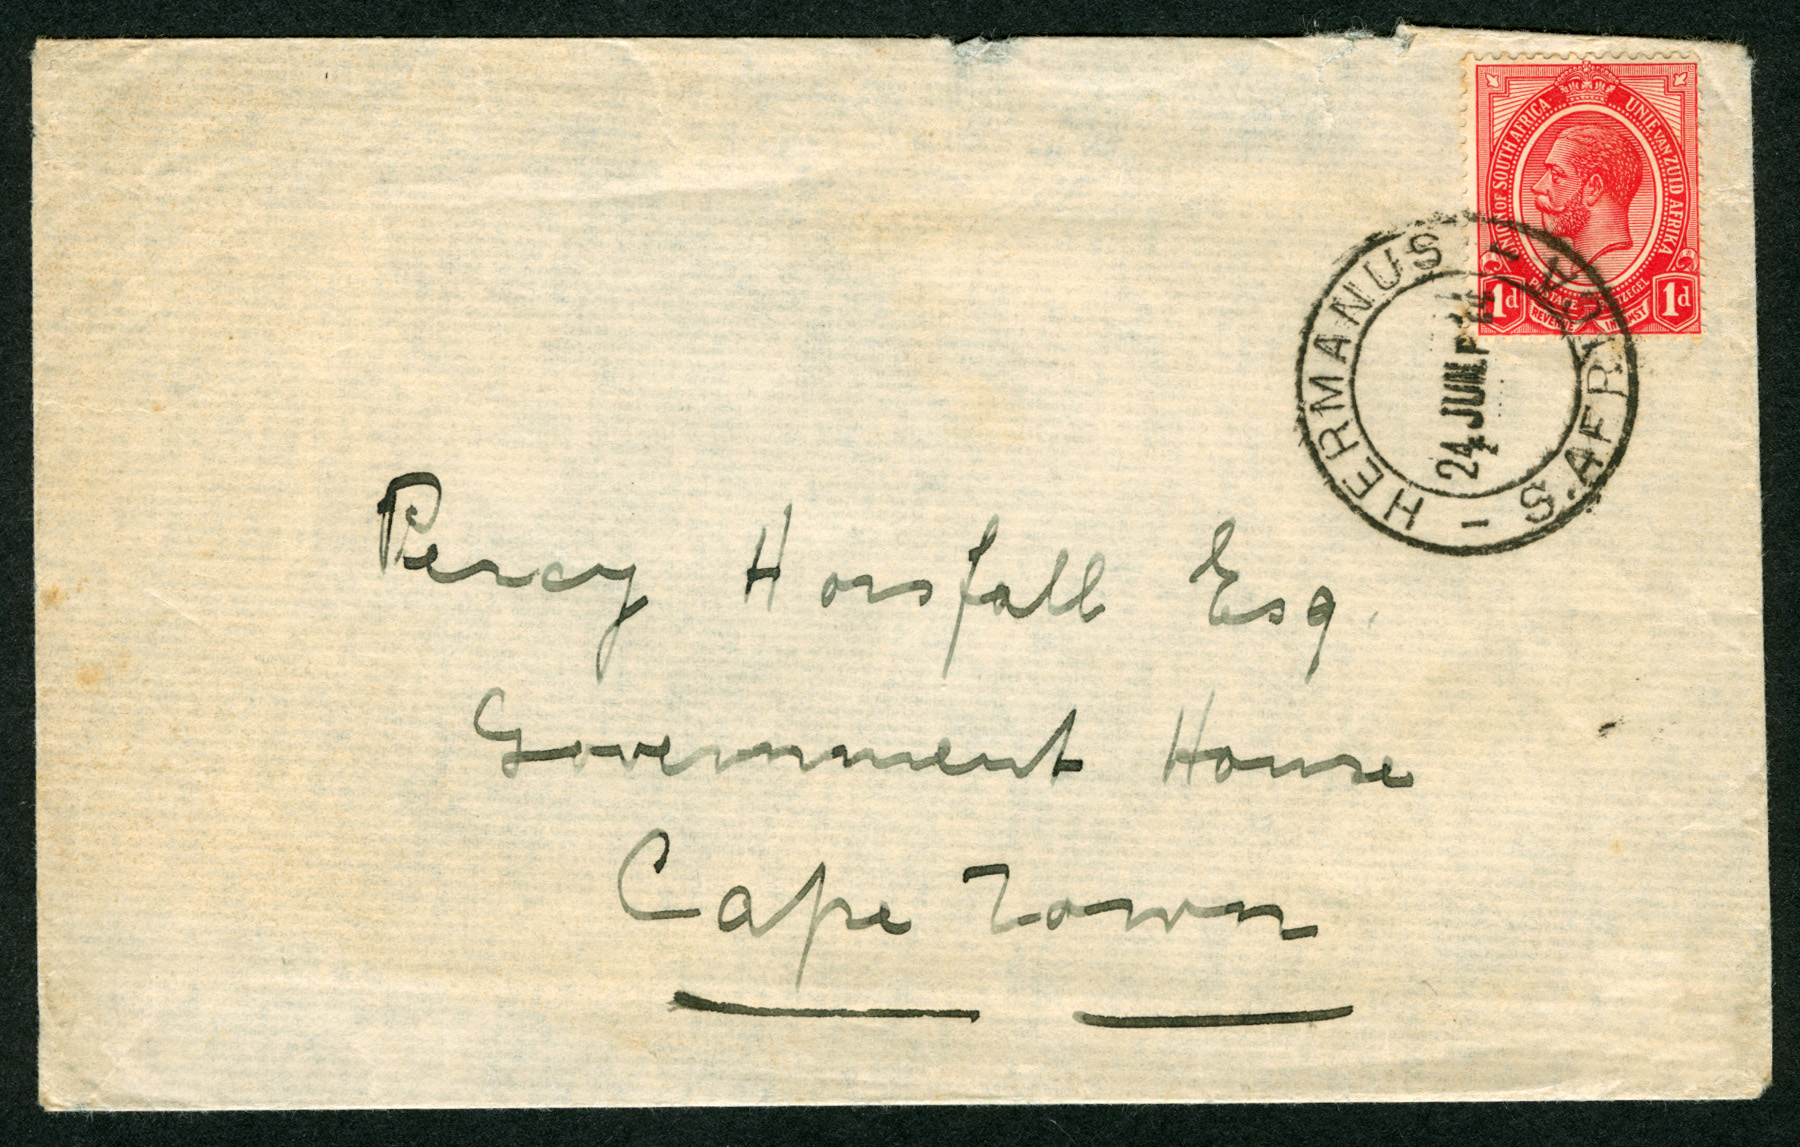 UNION OF SOUTH AFRICA UNIE VAN ZUID AFRIKA
1d POSTAGE ZEGEL 1d
REVENUE
HERMANUS - S. AFRICA -
24 JUN
Percy Horsfall Esq.
Government House
Cape Town